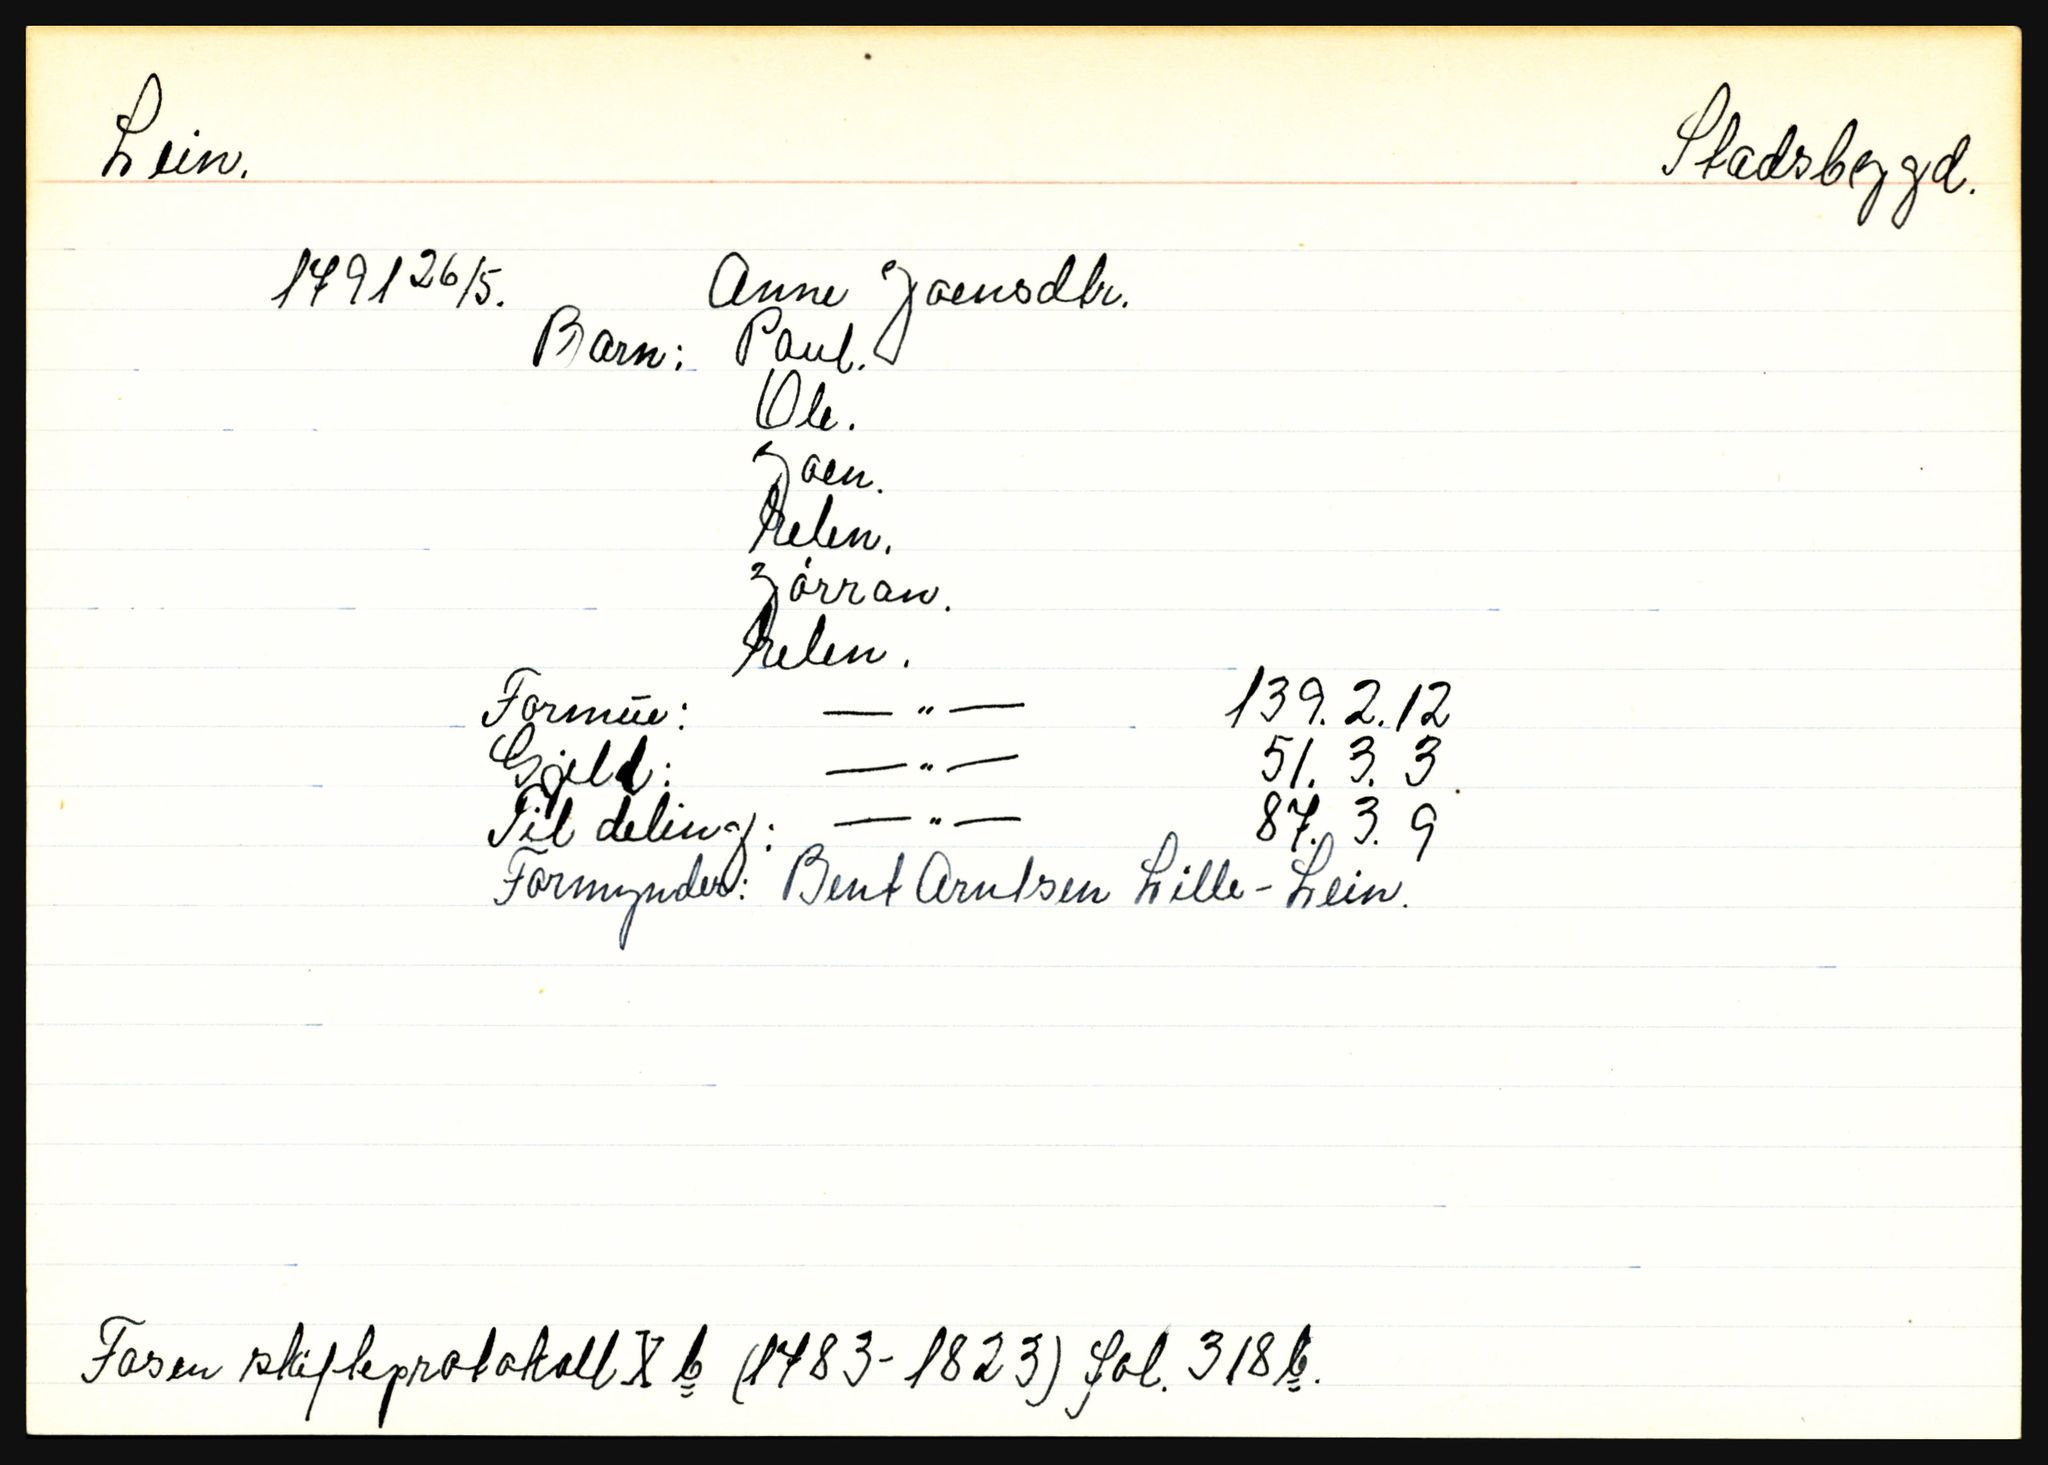 Lein.
Stadsbygd.
1791 26/5. Anne Joensdtr.
Barn: Paul.
Ole.
Joen.
Helen.
Jörran.
Helen.
Formúe: — " — 139. 2. 12
Gjeld: — " — 51. 3. 3
Til deling: — " — 87. 3. 9
Formynder: Bent Arntsen Lille-Lein.
Fosen skifteprotokoll X b (1783-1823) fol. 318 b.